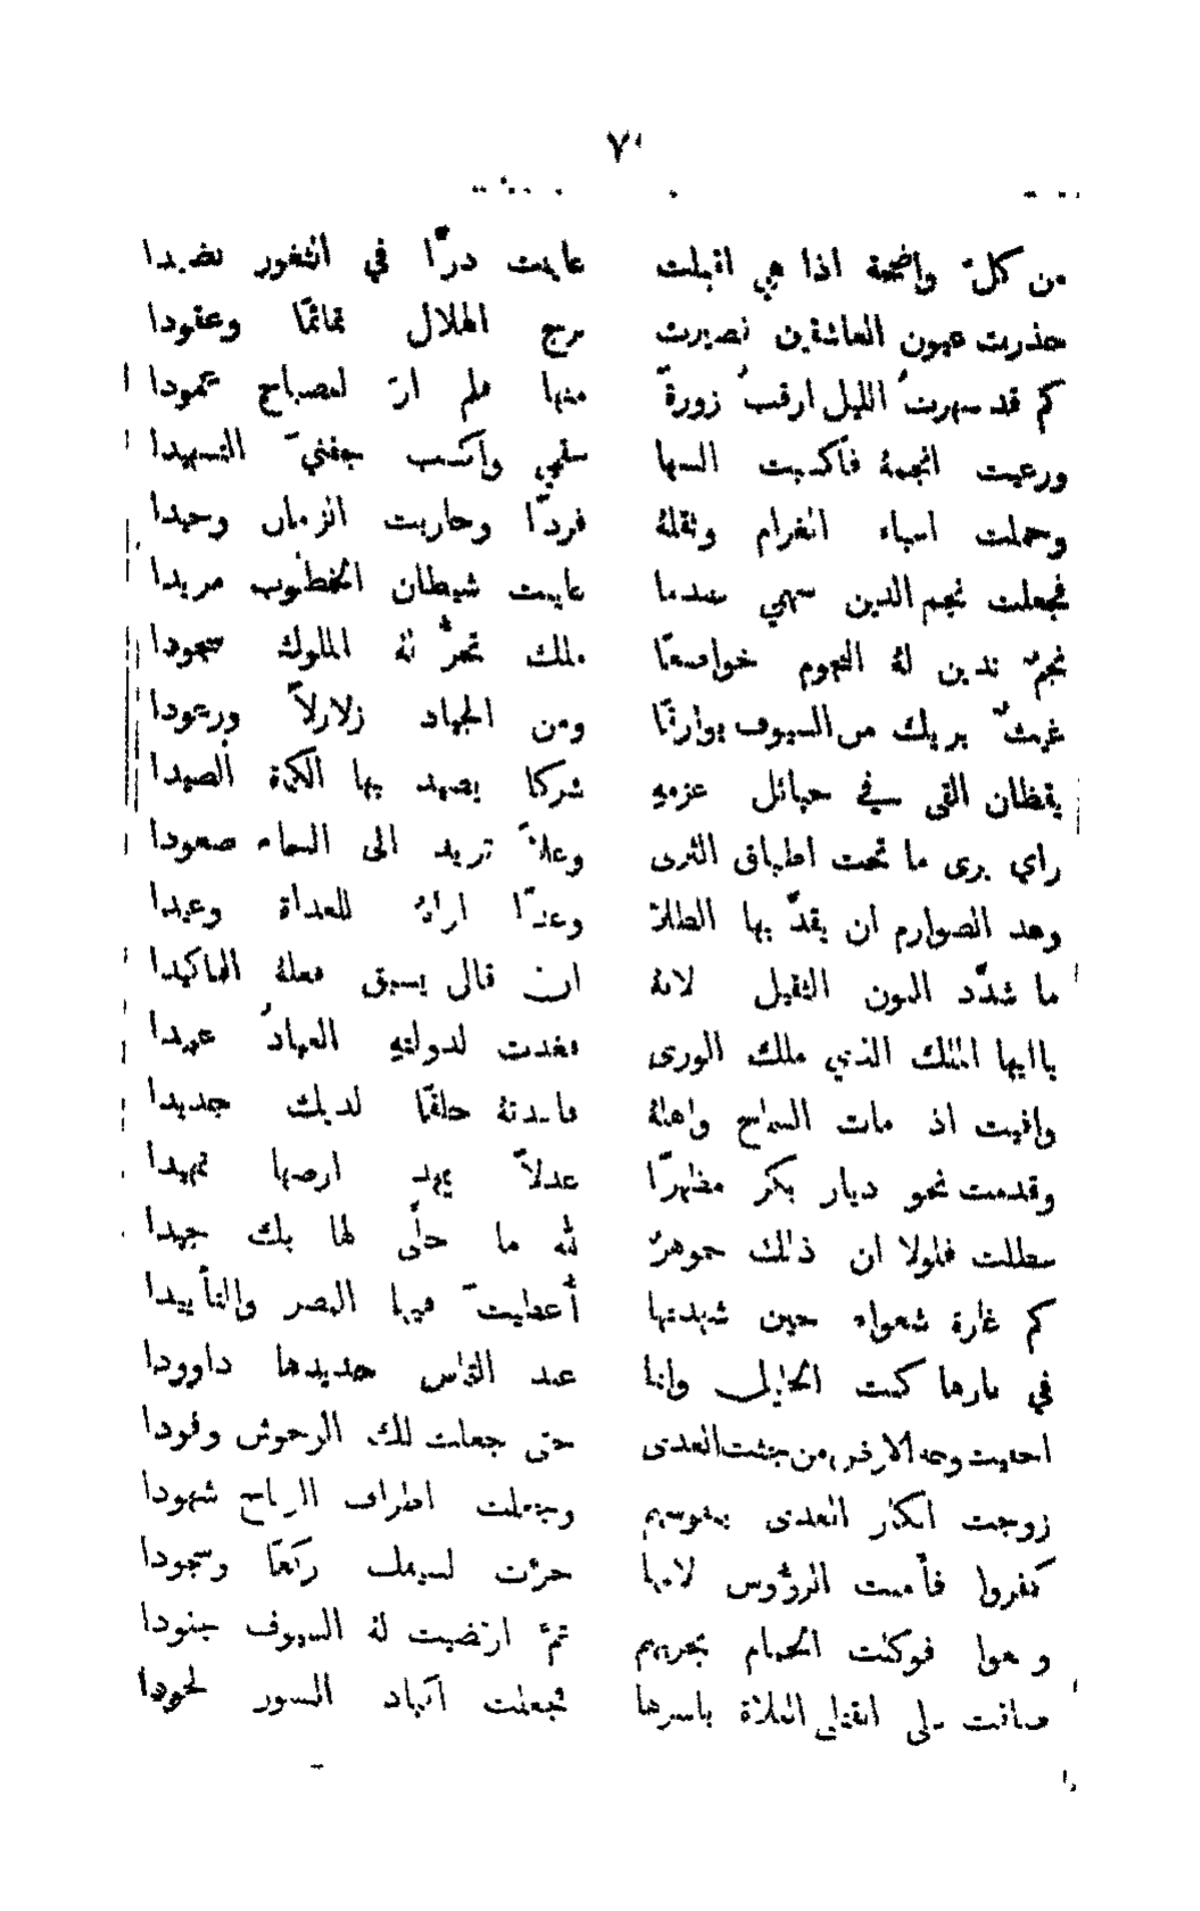 ٧٠
من كلّ واضحة اذا هي اقبلت عاينت درًّا في الثغور نضيدا
حذرت عيون العاشقين فصيرت مرج الهلال تمائمًا وعقودا
كم قد سهرتُ الليل ارقبُ زورةً منها فلم ارَ للصباح عمودا
ورعيت انجمهُ فأكسبت السها سقمي واكسب جفنيَ التسهيدا
وحملت اعباء الغرام وثقلهُ فردًا وحاربت الزمان وحيدا
فجعلت نجم الدين سهمي عندما عاينت شيطان الخطوب مريدا
نجمٌ تدين لهُ النجوم خواضعًا ملك تخرُّ لهُ الملوك سجودا
غيثٌ يريك من السيوف بوارقًا ومن الجياد زلازلاً ورعودا
يقظان القى في حبائل عزمهِ شركا يصيد بها الكماة الصيدا
راي يرى ما تحت اطباق الثرى وعلاً تريد الى السماء صعودا
وهد الصوارم ان يقدّ بها الطلا وعدًا اراهُ للعداة وعيدا
ما شدّد النون الثقيل لانهُ ان قال يسبق فعلهُ التاكيدا
يا ايها الملك الذي ملك الورى فغدت لدولتهِ العبادُ عبيدا
وافيت اذ مات السماح واهلهُ فاعدتهُ خلقًا لديك جديدا
وقدمت نحو ديار بكر مظهرًا عدلاً يمهد ارضها تمهيدا
عطلت فلولا ان ذلك جوهرٌ لله ما حلّى لها بك جيدا
كم غارة شعواء حين شهدتها أُعطيتَ فيها النصر والتأييدا
في نارها كنت الخليل وانما عند التماس حديدها داوودا
احييت وجه الارض من جثث العدى حتى جعلت لك الوحوش وفودا
زوجت ابكار العدى بنفوسهم وجعلت اطراف الرماح شهودا
كفروا فأمنت الرؤوس لانها خرّت لسيفك ركّعًا وسجودا
فوكلت الحمام بحربهم ثمّ ارتضيت لهُ السيوف جنودا
ضاقت على القتلى الفلاة باسرها فجعلت اكباد النسور لحودا